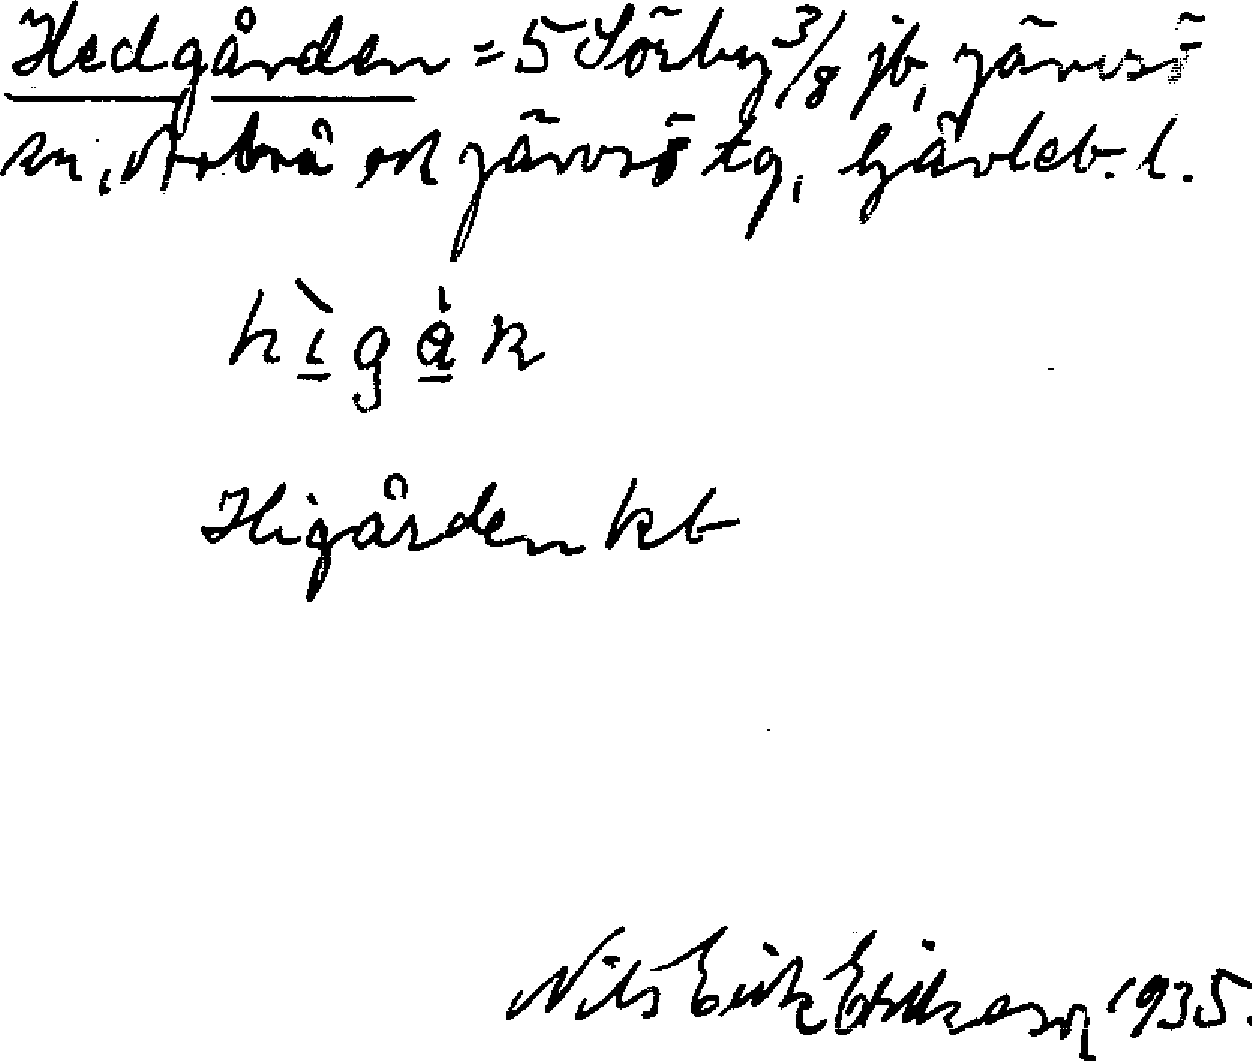 Hedgården = 5 Sörby 3/8 jb, Järvsö
sn, Arbrå och Järvsö tg, Gävleb. l.
hìgán
Higården kb
Nils Erik Eriksson 1935.